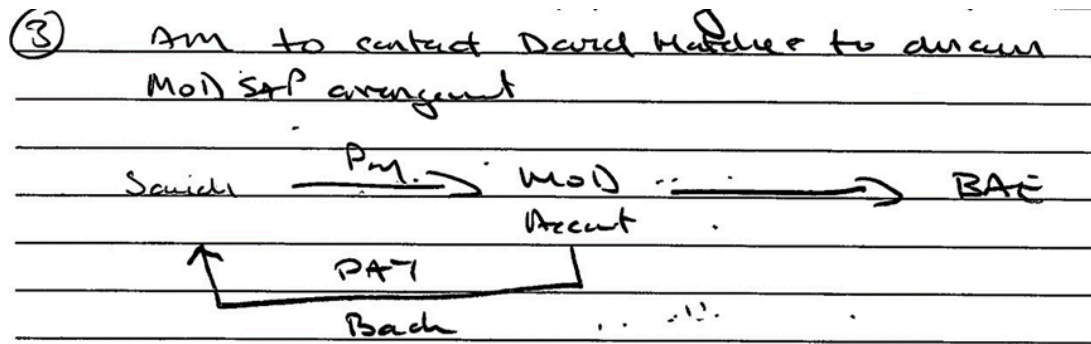 ③ AM to contact David Hardie to discuss
MOD SAP arrangement
Saudi Pay. MOD BAE
Account
PAY
Back